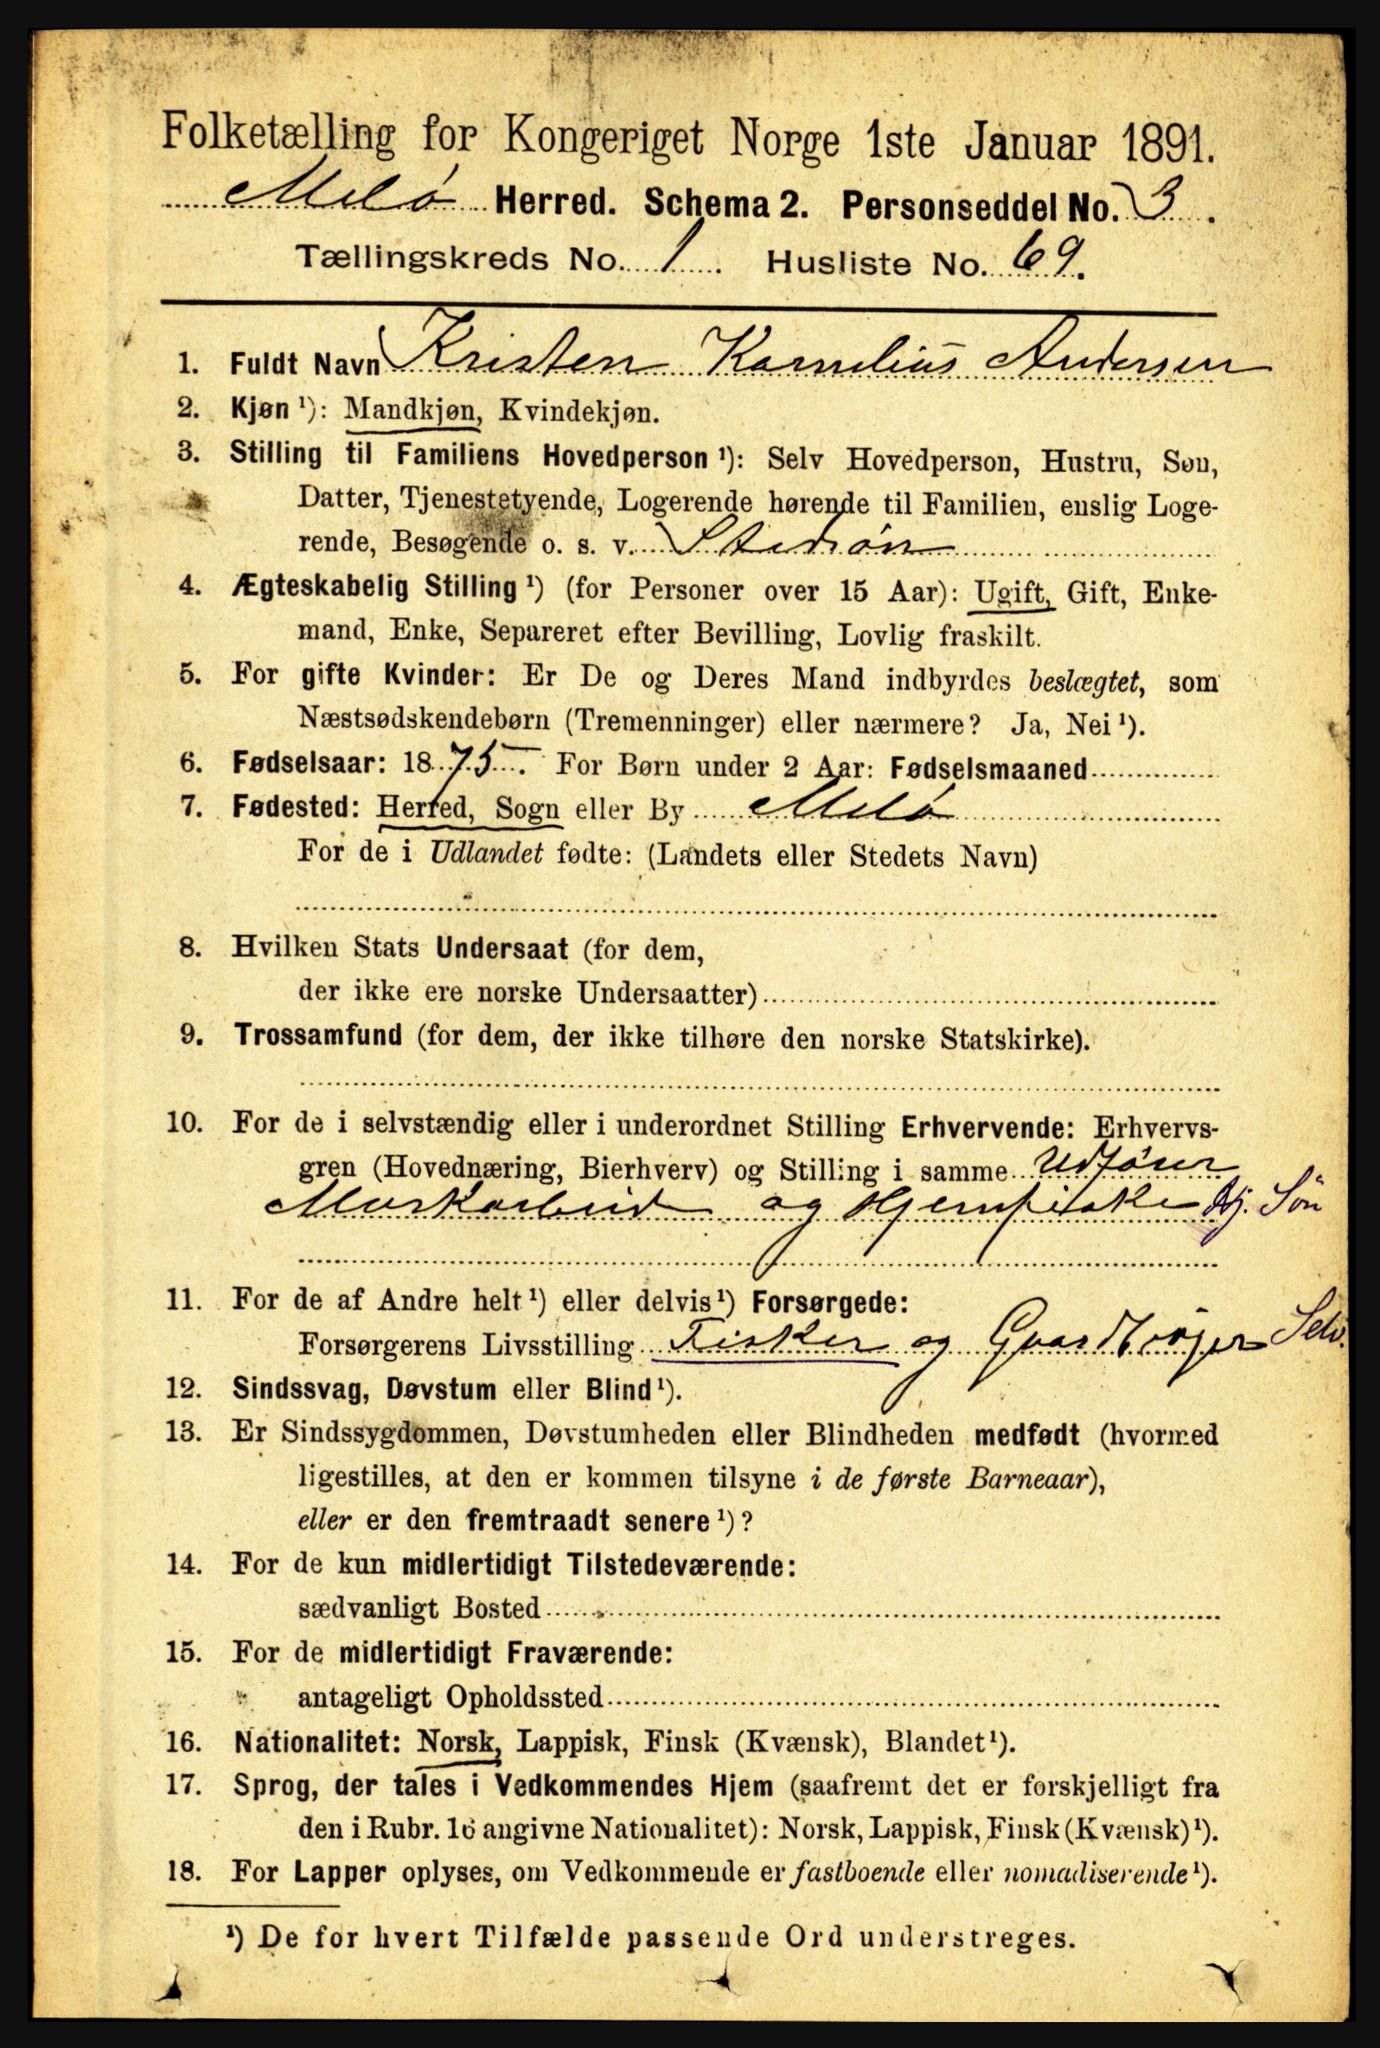 Folketælling for Kongeriget Norge 1ste Januar 1891.
Melø Herred. Schema 2. Personseddel No. 3.
Tællingskreds No. 1. Husliste No. 69.
1. Fuldt Navn Kristen Kornelius Andersen
2. Kjøn ¹): Mandkjøn, Kvindekjøn.
3. Stilling til Familiens Hovedperson ¹): Selv Hovedperson, Hustru, Søn,
Datter, Tjenestetyende, Logerende hørende til Familien, enslig Loge-
rende, Besøgende o. s. v. Stedsøn
4. Ægteskabelig Stilling ¹) (for Personer over 15 Aar): Ugift, Gift, Enke-
mand, Enke, Separeret efter Bevilling, Lovlig fraskilt.
5. For gifte Kvinder: Er De og Deres Mand indbyrdes beslægtet, som
Næstsødskendebørn (Tremenninger) eller nærmere? Ja, Nei ¹).
6. Fødselsaar: 1875. For Børn under 2 Aar: Fødselsmaaned
7. Fødested: Herred, Sogn eller By Melø
For de i Udlandet fødte: (Landets eller Stedets Navn)
8. Hvilken Stats Undersaat (for dem,
der ikke ere norske Undersaatter)
9. Trossamfund (for dem, der ikke tilhøre den norske Statskirke).
10. For de i selvstændig eller i underordnet Stilling Erhvervende: Erhvervs-
gren (Hovednæring, Bierhverv) og Stilling i samme Udfører
Markarbeid og Hjemfiske Hj. Søn
11. For de af Andre helt ¹) eller delvis ¹) Forsørgede:
Forsørgerens Livsstilling Fisker og Gaardbruger Selv.
12. Sindssvag, Døvstum eller Blind ¹).
13. Er Sindssygdommen, Døvstumheden eller Blindheden medfødt (hvormed
ligestilles, at den er kommen tilsyne i de første Barneaar),
eller er den fremtraadt senere ¹)?
14. For de kun midlertidigt Tilstedeværende:
sædvanligt Bosted
15. For de midlertidigt Fraværende:
antageligt Opholdssted
16. Nationalitet: Norsk, Lappisk, Finsk (Kvænsk), Blandet ¹).
17. Sprog, der tales i Vedkommendes Hjem (saafremt det er forskjelligt fra
den i Rubr. 16 angivne Nationalitet): Norsk, Lappisk, Finsk (Kvænsk) ¹).
18. For Lapper oplyses, om Vedkommende er fastboende eller nomadiserende ¹).
¹) De for hvert Tilfælde passende Ord understreges.